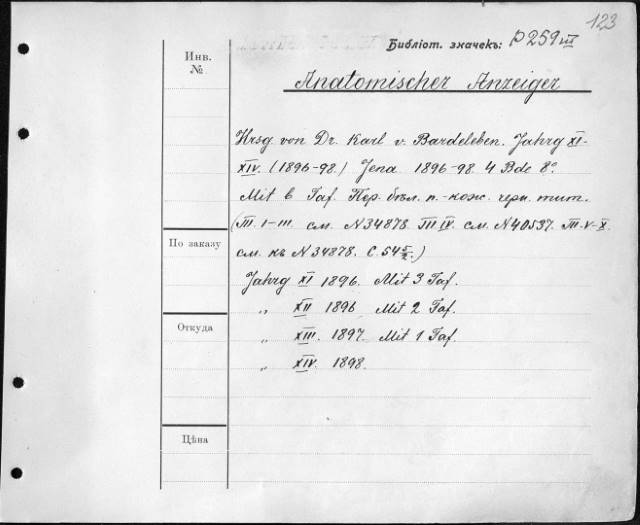 123
Библіот. значекъ: P 259 III
Инв. №
Anatomischer Anzeiger
Hrsg von Dr. Karl v. Bardeleben. Jahrg XI-
XIV. (1896-98.) Jena 1896-98. 4 Bde 8°.
Mit 6 Taf. Пер. бѣл. п.-кож. черн. тит.
(T. I-III. см. N 34878. T. IV. см. N 40537. T. V-X.
По заказу
см. къ N 34878. С. 54 5/2.)
Jahrg XI 1896. Mit 3 Taf.
„ XII 1896. Mit 2 Taf.
Откуда
„ XIII. 1897. Mit 1 Taf.
„ XIV. 1898.
Цѣна